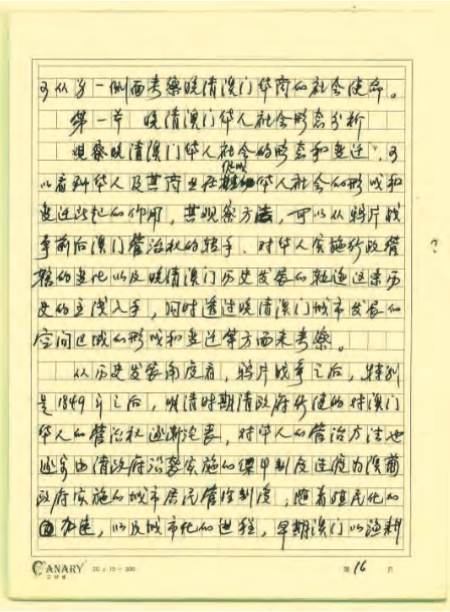 可从另一侧面考察晚清澳门华商的社会使命。
第一节 晚清澳门华人社会形态分析
观察晚清澳门华人社会的形态和变迁，可
以看到华人及其商业在华人社会的形成和
变迁所起的作用，其观察方法，可以从鸦片战
争前后澳门管治权的转手、对华人实施行政管
辖的变化以及晚清澳门历史发展的轨迹这条历
史的主线入手，同时透过晚清澳门城市发展的
空间过城的形成和变迁等方面来考察。
从历史发展角度看，鸦片战争之后，特别
是1849年之后，明清时期清政府行使的对澳门
华人的管治权逐渐沦丧，对华人的管治方法也
逐步由清政府沿袭实施的保甲制度过渡为澳葡
政府实施的城市居民管理制度；随着殖民化的
加速，以及城市化的进程，早期澳门以渔耕
CANARY 20 x 15 = 300
第 16 页
?